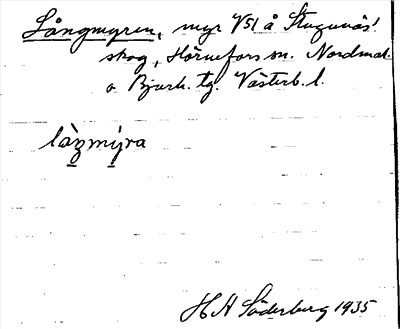 Långmyren, myr V51 å Stugunäs!
skog, Hörnefors sn. Nordmal.
o Bjurh. tg. Västerb. l.
làŋmýra
H A Söderberg 1935